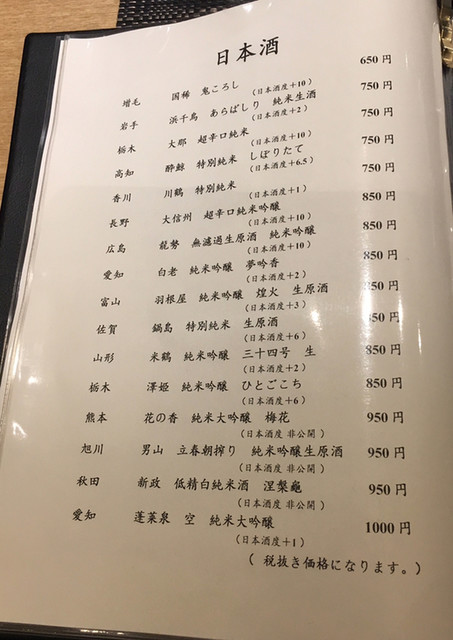 日本酒
増毛 国稀 鬼ころし 650円
（日本酒度＋10）
岩手 浜千鳥 あらばしり 純米生酒 750円
（日本酒度＋2）
栃木 大那 超辛口純米 750円
（日本酒度＋10）
高知 酔鯨 特別純米 しぼりたて 750円
（日本酒度＋6.5）
香川 川鶴 特別純米 750円
（日本酒度＋1）
長野 大信州 超辛口純米吟醸 850円
（日本酒度＋10）
広島 能勢 無濾過生原酒 純米吟醸 850円
（日本酒度＋10）
愛知 白老 純米吟醸 夢吟香 850円
（日本酒度＋2）
富山 羽根屋 純米吟醸 煌火 生原酒 850円
（日本酒度＋3）
佐賀 鍋島 特別純米 生原酒 850円
（日本酒度＋6）
山形 米鶴 純米吟醸 三十四号 生 850円
（日本酒度＋2）
栃木 澤姫 純米吟醸 ひとごこち 850円
（日本酒度＋6）
熊本 花の香 純米大吟醸 梅花 950円
（日本酒度 非公開）
旭川 男山 立春朝搾り 純米吟醸生原酒 950円
（日本酒度 非公開）
秋田 新政 低精白純米酒 涅槃龜 950円
（日本酒度 非公開）
愛知 蓬莱泉 空 純米大吟醸 1000円
（日本酒度＋1）
（ 税抜き価格になります。）